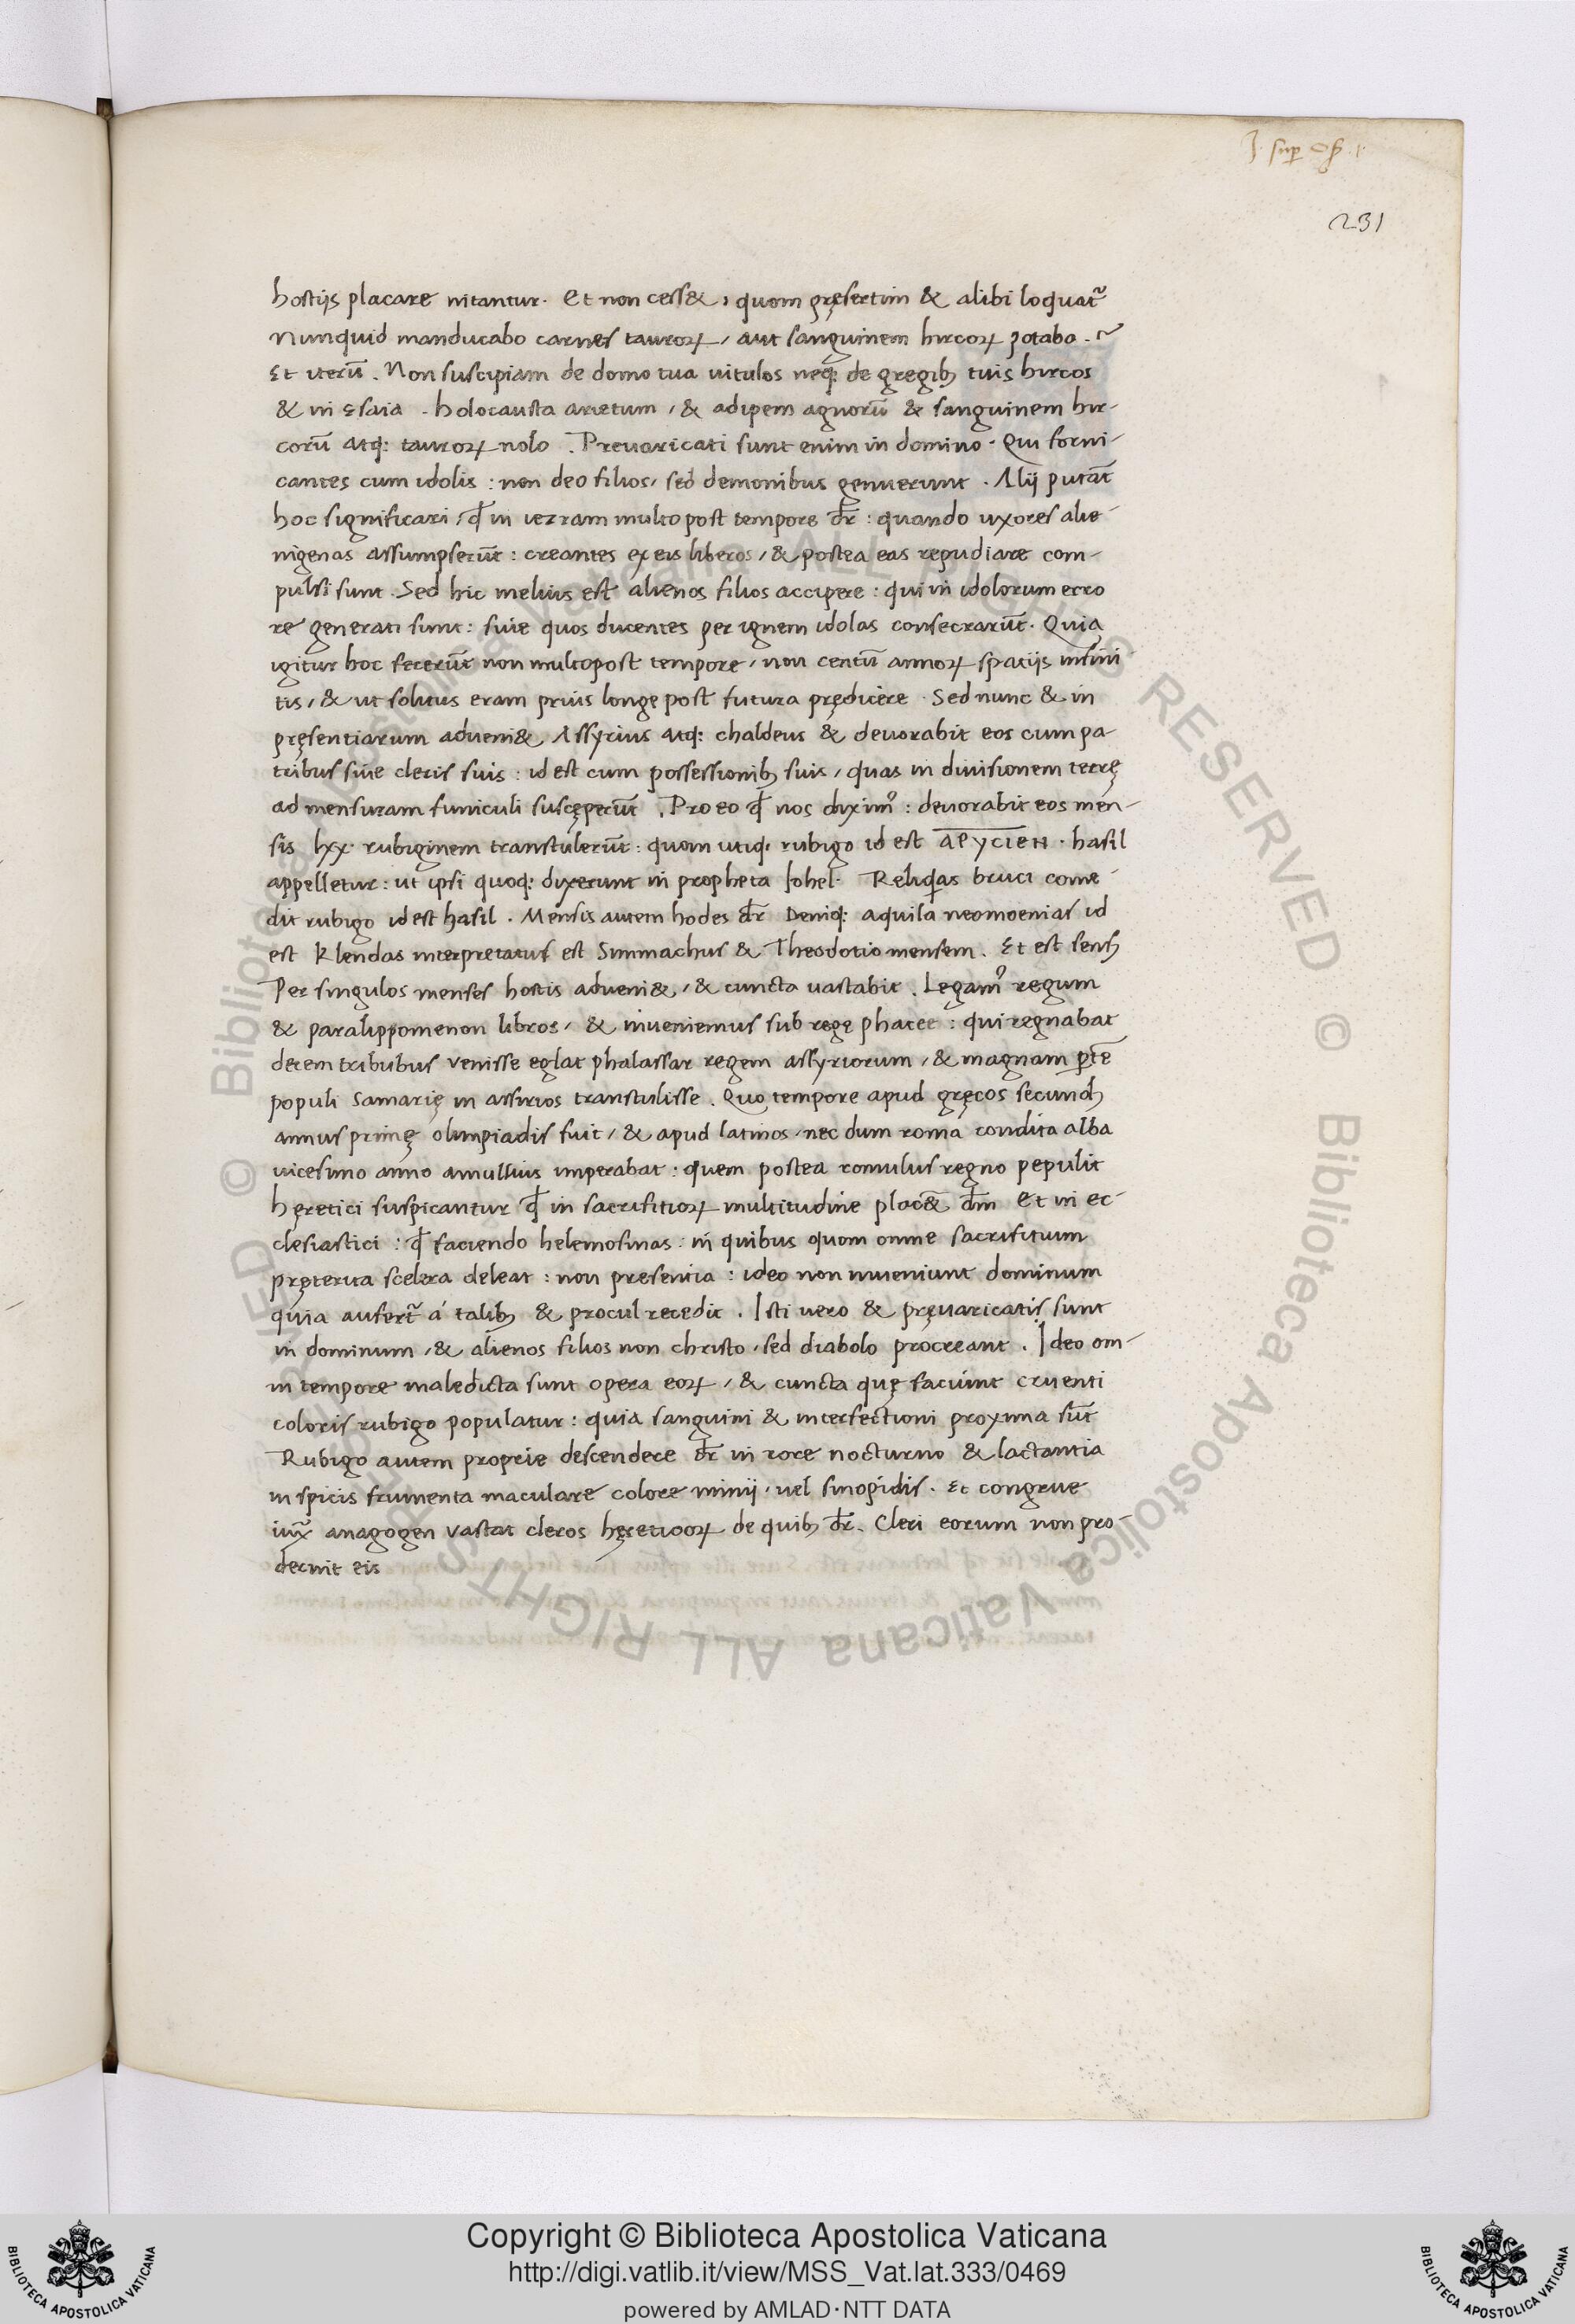 J. sup̱ Oſ̱ 1.
231
hostijs placare nitantur. Et non cess&, quom pręsertim & alibi loquat᷑
Nunquid manducabo carnes tauroꝝ, aut sanguinem hircoꝝ potabo. r᷑
Et iterū. Non suscipiam de domo tua uitulos neq: de gregibꝫ tuis hircos
& in ęsaia. holocausta arietum, & adipem agnorū & sanguinem hir-
corū atq: tauroꝝ nolo. Prevaricati sunt enim in domino. Qui forni-
cantes cum idolis: non deo filios, sed demonibus genuerunt. Alij putāt
hoc significari, qđ in iezram multo post tempore dr̄: quando uxores alie-
nigenas assumpserūt: creantes ex eis liberos, & postea eas repudiare com-
pulsi sunt. Sed hic melius est alienos filios accipere: qui in idolorum erro
re generati sunt: siue quos ducentes per ignem idolas consecrarūt. Quia
igitur hoc fecerūt non multopost tempore, non centū annoꝝ spatijs infini
tis, & ut solitus eram prius longe post futura prędicere. Sed nunc & in
pręsentiarum adueni& Assyrius atq: chaldeus & deuorabit eos cum pa-
tribus siue cleris suis: id est cum possessionibꝫ suis, quas in diuisionem terrę
ad mensuram funiculi suscęperūt. Pro eo qđ nos diximꝰ: deuorabit eos men-
sis lxx. rubiginem transtulerūt: quom utiq: rubigo id est ΑΡΥCΙΕΗ. hasil
appelletur: ut ipsi quoq: dixerunt in propheta Iohel. Reliquias bruci come-
dit rubigo id est hasil. Mensis autem hodes dr̄ Deniq: aquila neomoenias id
est klendas interpretatus est Simmachus & Theodotio mensem. Et est sensꝫ
Per singulos menses hostis adueni&, & cuncta uastabit. Legamꝰ regum
& paralippomenon libros, & inueniemus sub rege phacee: qui regnabat
decem tribubus venisse eglat phalassar regem assyriorum, & magnam p̱tē
populi Samarię in assirios transtulisse. Quo tempore apud gręcos secundꝫ
annus primę olimpiadis fuit, & apud latinos, nec dum roma condita alba
uicesimo anno amullius imperabat: quem postea romulus regno pepulit
hęretici suspicantur qđ in sacrifitioꝝ multitudine plac& dm̄ Et in ec-
clesiastici: qđ faciendo helemosinas: in quibus quom omne sacrifitium
pręterita scelera deleat: non presentia: ideo non inueniunt dominum
quia aufert᷑ á talibꝫ & procul recedit. Isti uero & pręuaricatis sunt
in dominum, & alienos filios non christo, sed diabolo procreant. Ideo om-
in tempore maledicta sunt opera eoꝝ, & cuncta quę faciunt cruenti
coloris rubigo populatur: quia sanguini & interfectioni proxima sūt
Rubigo autem proprie descendere dr̄ in rore nocturno & lactantia
in spicis frumenta maculare colore minij, uel sinopidis. Et congrue
iux᷑ anagogen vastat cleros hęreticoꝝ de quibꝫ dr̄. Cleri eorum non pro-
derunt eis
© Biblioteca Apostolica Vaticana ALL RIGHTS RESERVED © Biblioteca Apostolica Vaticana ALL RIGHTS RESERVED
Copyright © Biblioteca Apostolica Vaticana
http://digi.vatlib.it/view/MSS_Vat.lat.333/0469
powered by AMLAD·NTT DATA
BIBLIOTECA APOSTOLICA VATICANA
BIBLIOTECA APOSTOLICA VATICANA